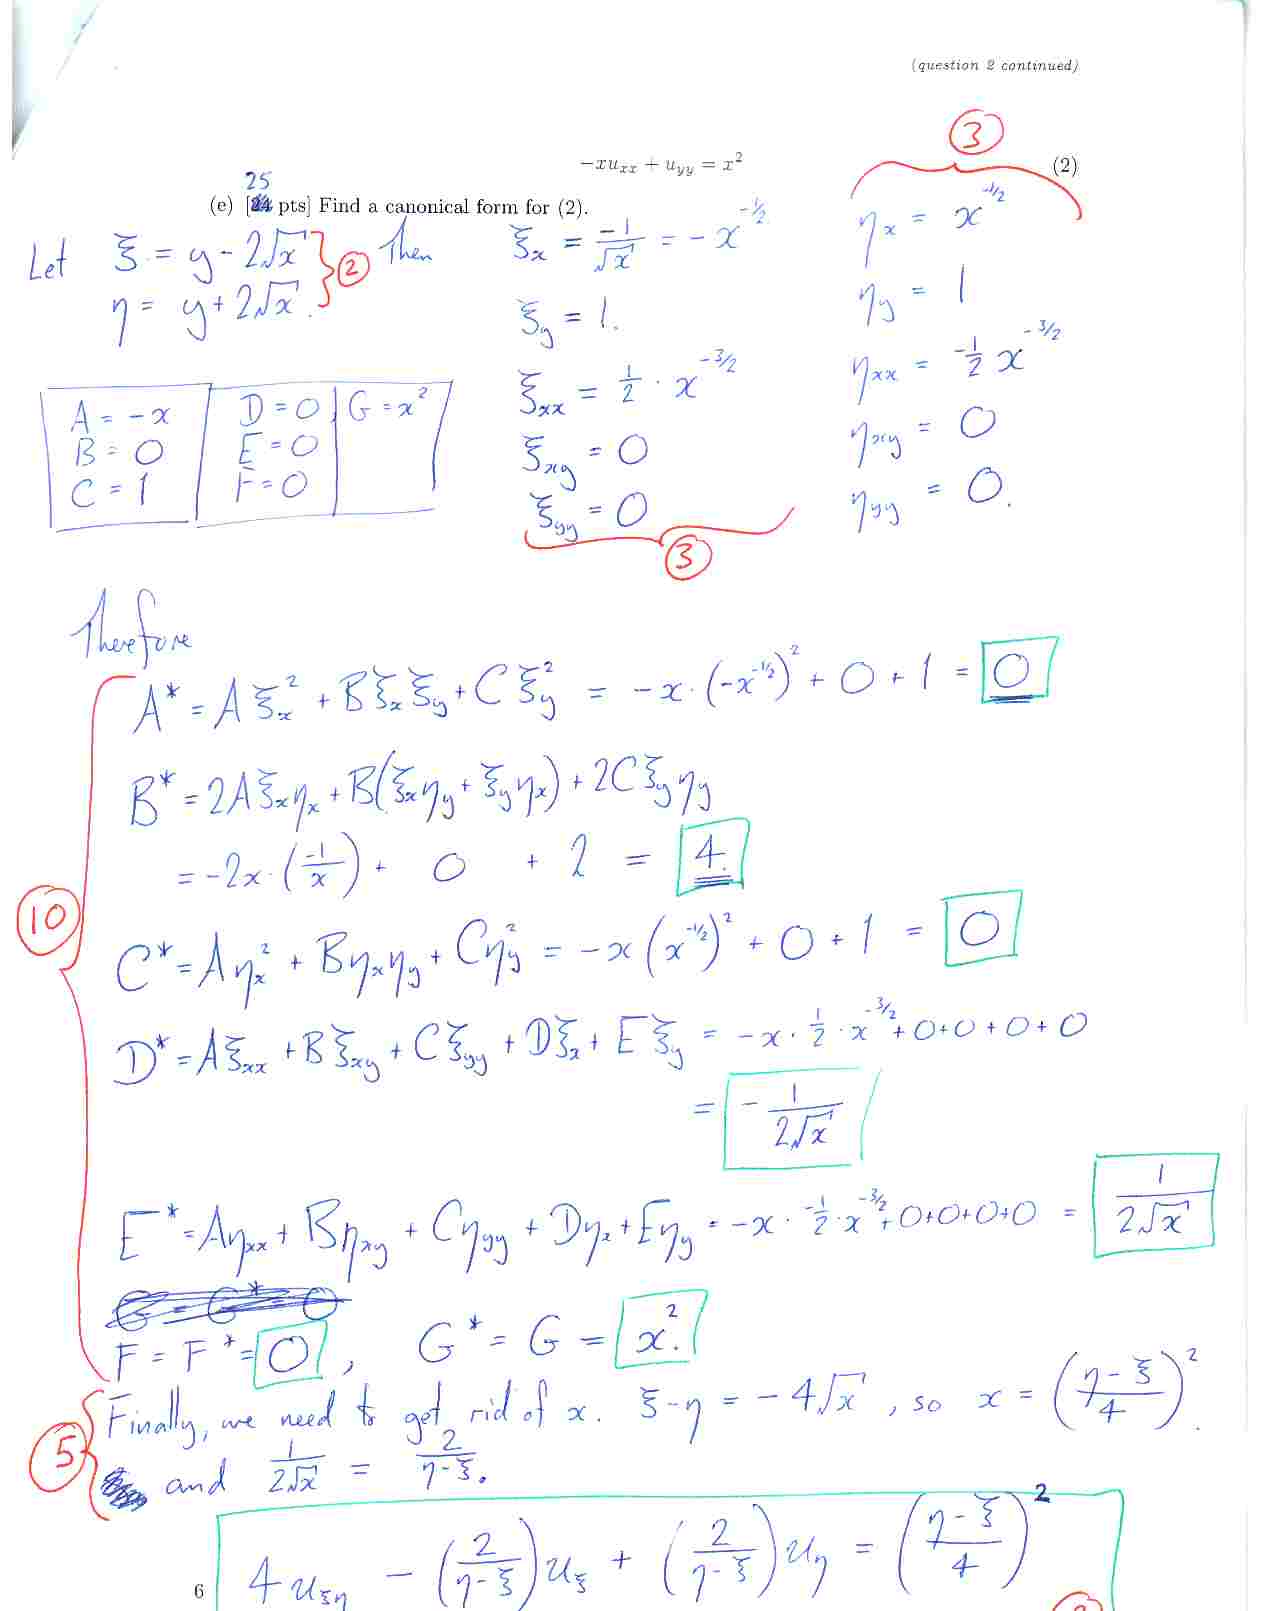 (question 2 continued)
3
−xu_xx + u_yy = x² (2)
25
(e) [24 pts] Find a canonical form for (2).
Let ξ = y − 2√x
η = y + 2√x.
2
Then
ξ_x = −1/√x = −x^(−1/2)
ξ_y = 1.
ξ_xx = 1/2 · x^(−3/2)
ξ_xy = 0
ξ_yy = 0
3
η_x = x^(−1/2)
η_y = 1
η_xx = −1/2 x^(−3/2)
η_xy = 0
η_yy = 0.
A = −x D = 0 G = x²
B = 0 E = 0
C = 1 F = 0
Therefore
A* = A ξ_x² + B ξ_x ξ_y + C ξ_y² = −x·(−x^(−1/2))² + 0 + 1 = 0
B* = 2A ξ_x η_x + B(ξ_x η_y + ξ_y η_x) + 2C ξ_y η_y
= −2x·(−1/x) + 0 + 2 = 4.
10
C* = A η_x² + B η_x η_y + C η_y² = −x (x^(−1/2))² + 0 + 1 = 0
D* = A ξ_xx + B ξ_xy + C ξ_yy + D ξ_x + E ξ_y = −x · 1/2 · x^(−3/2) + 0+0+0+0
= −1/(2√x)
E* = A η_xx + B η_xy + C η_yy + D η_x + E η_y = −x · −1/2 · x^(−3/2) + 0+0+0+0 = 1/(2√x)
F = F* = 0, G* = G = x².
Finally, we need to get rid of x. ξ − η = −4√x, so x = ((η − ξ)/4)².
5
and 1/(2√x) = 2/(η − ξ).
4 u_ξη − (2/(η − ξ)) u_ξ + (2/(η − ξ)) u_η = ((η − ξ)/4)²
6